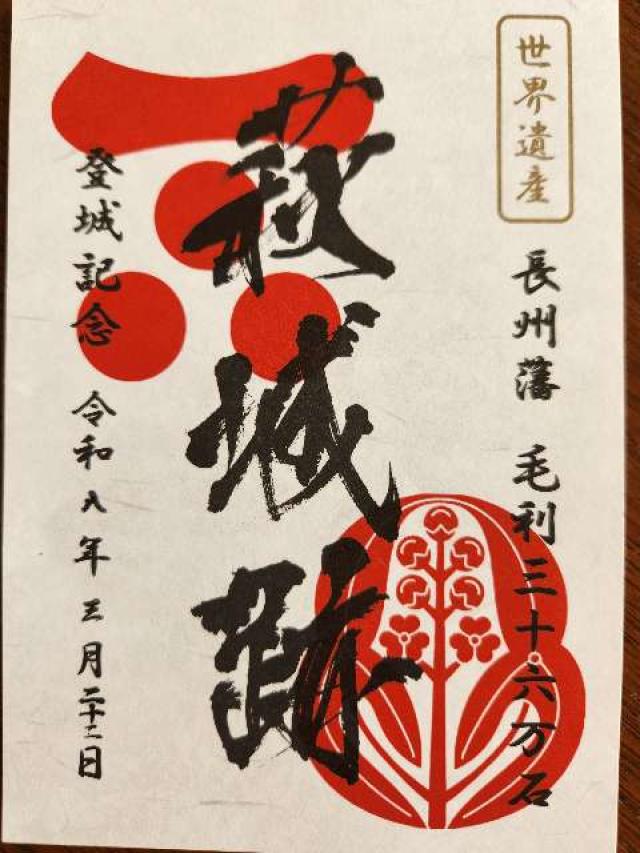 世界遺産
長州藩 毛利三十六万石
萩城跡
登城記念 令和八年三月二十二日